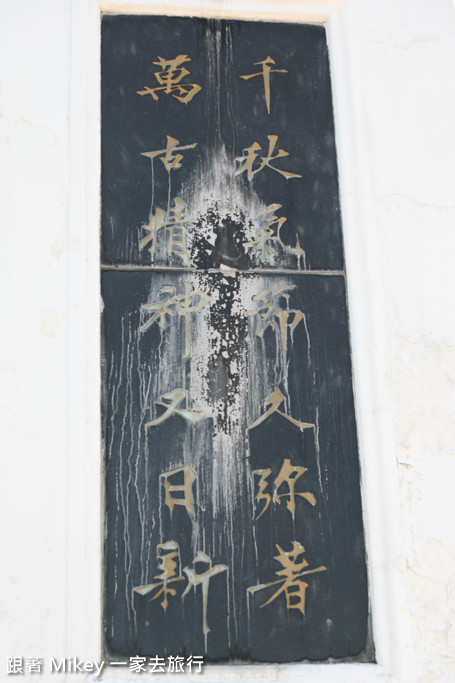 千秋氣節久弥著
萬古精神又日新
跟著 Mikey 一家去旅行